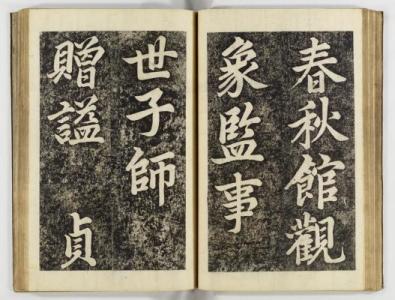 春秋館觀
象監事
世子師
贈謚 貞